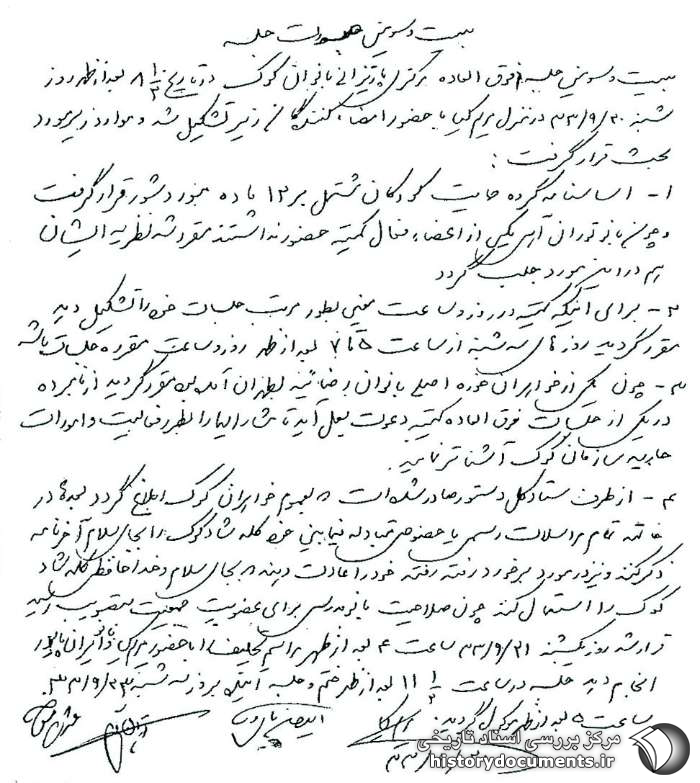 بیست و سومین جلسه
بیست و سومین جلسه فوق العاده مرکزی پارتیزانی بانوان کوک در تاریخ ۸ ۱/۲ بعد از ظهر روز
شنبه ۳۳/۹/۲۰ در منزل مریم کیا با حضور امضاء کنندگان زیر تشکیل شد و موارد زیر مورد
بحث قرار گرفت :
۱- اساسنامه گروه حمایت کودکان مشتمل بر ۱۲ ماده مورد شور قرار گرفت
و چون بانو توران از اعضاء فعال کمیته حضور نداشتند مقرر شد نظریه ایشان
هم در این مورد جلب گردد
۲- برای اینکه کمیته در روز و ساعت معینی بطور مرتب جلسات خود را تشکیل دهد
مقرر گردید روزهای سه شنبه از ساعت ۵ تا ۷ بعد از ظهر روز و ساعت مقرره جلسات باشد
۳- چون یکی از خواهران حوزه اصلی بانوان رضائیه بطهران آمده مقرر گردید از نامبرده
در یکی از جلسات فوق العاده کمیته دعوت بعمل آید تا مشارالیها را بطرز فعالیت و امورات
جاریه سازمان کوک آشناتر نمایید
۴- از طرف ستاد کل دستور صادر شده است بعموم خواهران کوک ابلاغ گردد بعدها در
خاتمه تمام مراسلات رسمی یا خصوصی متبادله فیمابین خود کلمه شاد کوک را بجای سلام آخر نامه
ذکر کنند و نیز در مورد برخورد رفته رفته خود را عادت دهند بجای سلام و خداحافظی کلمه شاد
کوک را استعمال کنند چون صلاحیت بانو برای عضویت جمعیت بتصویب رسید
قرار شد روز یکشنبه ۳۳/۹/۲۱ ساعت ۴ بعد از ظهر مراسم تحلیف را با حضور مریم کیا و
انجام دهد جلسه در ساعت ۱۱ ۱/۲ بعد از ظهر ختم و جلسه آینده بروز سه شنبه ۳۳/۹/۲۳
ساعت ۵ بعد از ظهر موکول گردید
مرکز بررسی اسناد تاریخی
historydocuments.ir